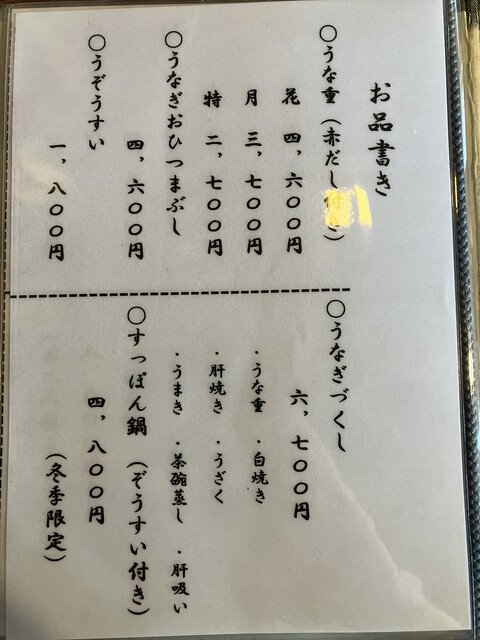 お品書き
〇うな重（赤だし付き）
花 四，六〇〇円
月 三，七〇〇円
特 二，七〇〇円
〇うなぎおひつまぶし
四，六〇〇円
〇うぞうすい
一，八〇〇円
〇うなぎづくし
六，七〇〇円
・うな重 ・白焼き
・肝焼き ・うざく
・うまき ・茶碗蒸し ・肝吸い
〇すっぽん鍋（ぞうすい付き）
四，八〇〇円
（冬季限定）